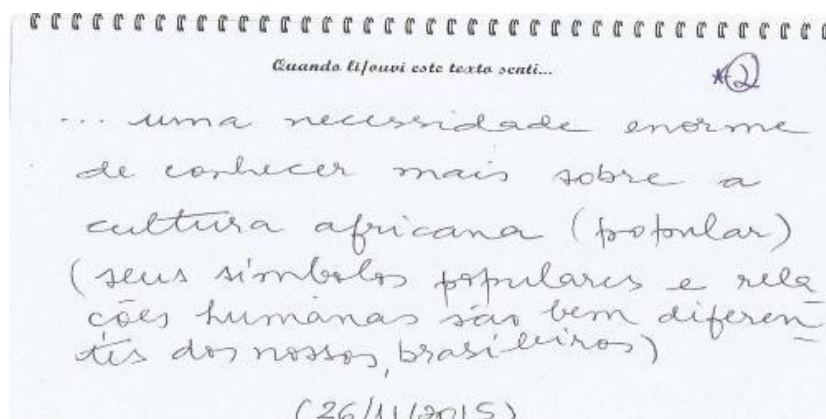 Quando li/ouvi este texto senti...
*2
... uma necessidade enorme
de conhecer mais sobre a
cultura africana (popular)
(seus símbolos populares e rela
ções humanas são bem diferen-
tes dos nossos, brasileiros)
(26/11/2015)